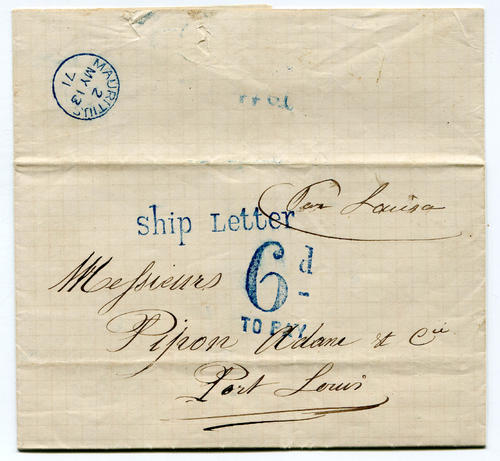 MAURITIUS
2
MY 13
71
Par Louisa
Ship Letter
6d
TO PAY
Messieurs
Pipon Adam & Cie
Port Louis